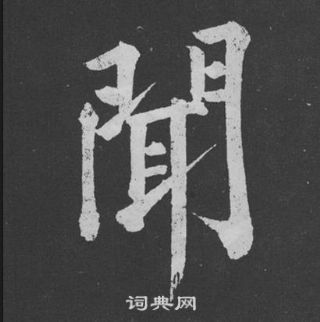 聞
词典网